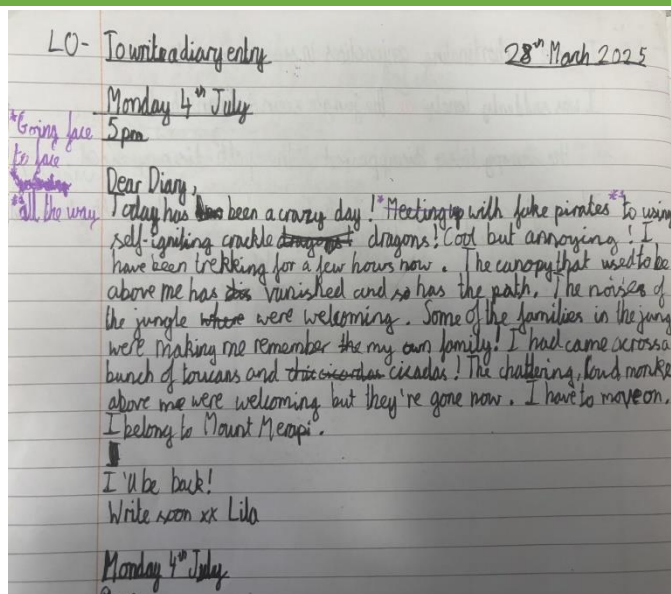 LO- To write a diary entry 28th March 2025
Monday 4th July
5pm
*Going face
to face
**all the way
Dear Diary,
Today has been a crazy day! *Meeting up with fake pirates ** to using
self-igniting crackle dragons! Cool but annoying! I
have been trekking for a few hours now. The canopy that used to be
above me has vanished and so has the path. The noises of
the jungle were welcoming. Some of the families in the jung
were making me remember my own family! I had came across a
bunch of toucans and cicadas! The chattering, loud monke
above me were welcoming but they're gone now. I have to move on.
I belong to Mount Merapi.
I'll be back!
Write soon xx Lila
Monday 4th July